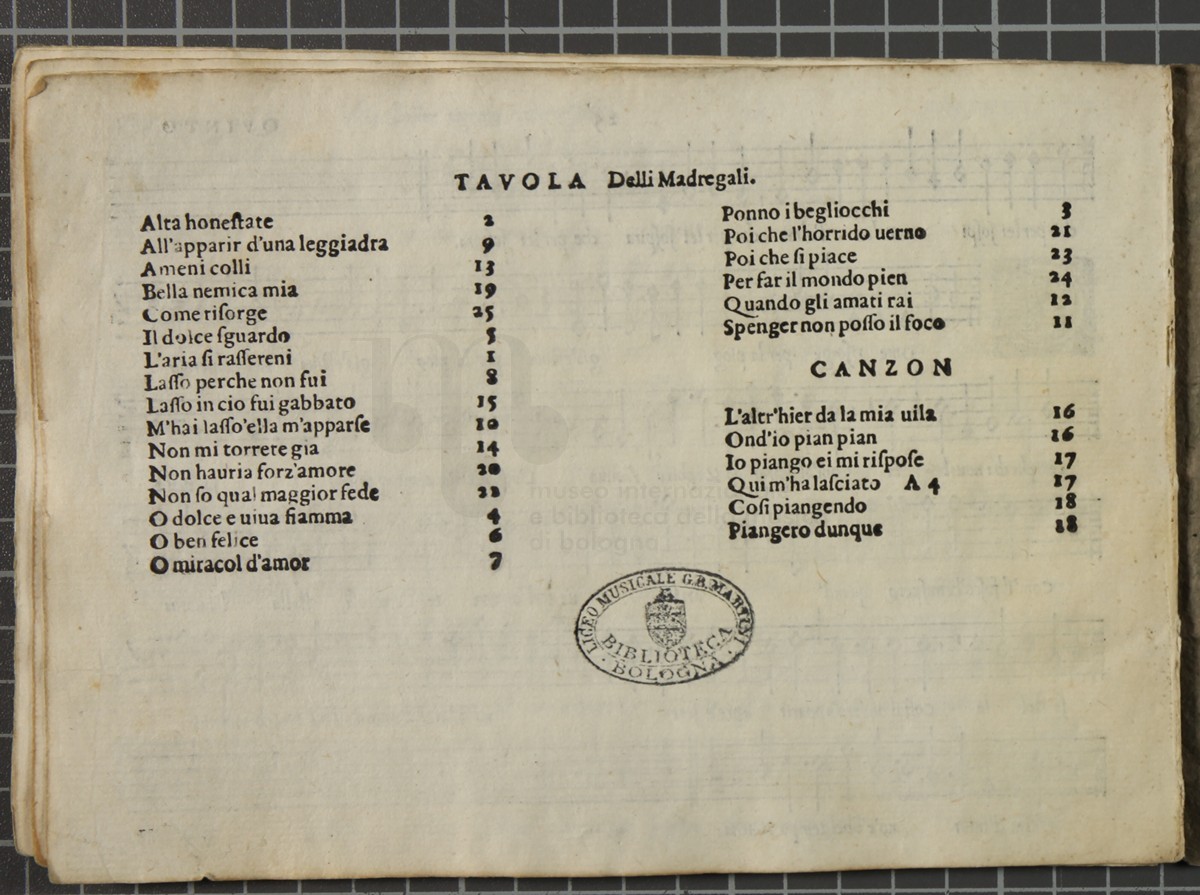 TAVOLA Delli Madregali.
Alta honeſtate 2
All'apparir d'una leggiadra 9
Ameni colli 13
Bella nemica mia 19
Come riſorge 25
Il dolce ſguardo 5
L'aria ſi raſſereni 1
Laſſo perche non fui 8
Laſſo in cio fui gabbato 15
M'hai laſſo'ella m'apparſe 10
Non mi torrete gia 14
Non hauria forz'amore 20
Non ſo qual maggior fede 22
O dolce e uiua fiamma 4
O ben felice 6
O miracol d'amor 7
Ponno i begliocchi 3
Poi che l'horrido uerno 21
Poi che ſi piace 23
Per far il mondo pien 24
Quando gli amati rai 12
Spenger non poſſo il foco 11
CANZON
L'altr'hier da la mia uila 16
Ond'io pian pian 16
Io piango ei mi riſpoſe 17
Qui m'ha laſciato A 4 17
Coſi piangendo 18
Piangero dunque 18
museo internazi
e biblioteca dell
di bologna
LICEO MUSICALE G.B. MARTINI
BIBLIOTECA
BOLOGNA